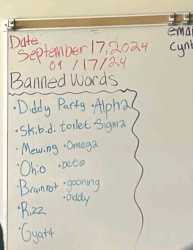 Date
September 17, 2024
09/17/24
emai
cynt
Banned Words
• Diddy Party • Alpha
• Skibidi toilet Sigma
• Mewing • Omega
• Ohio • beta
• Brainrot • gooning
• Diddy
• Rizz
• Gyatt